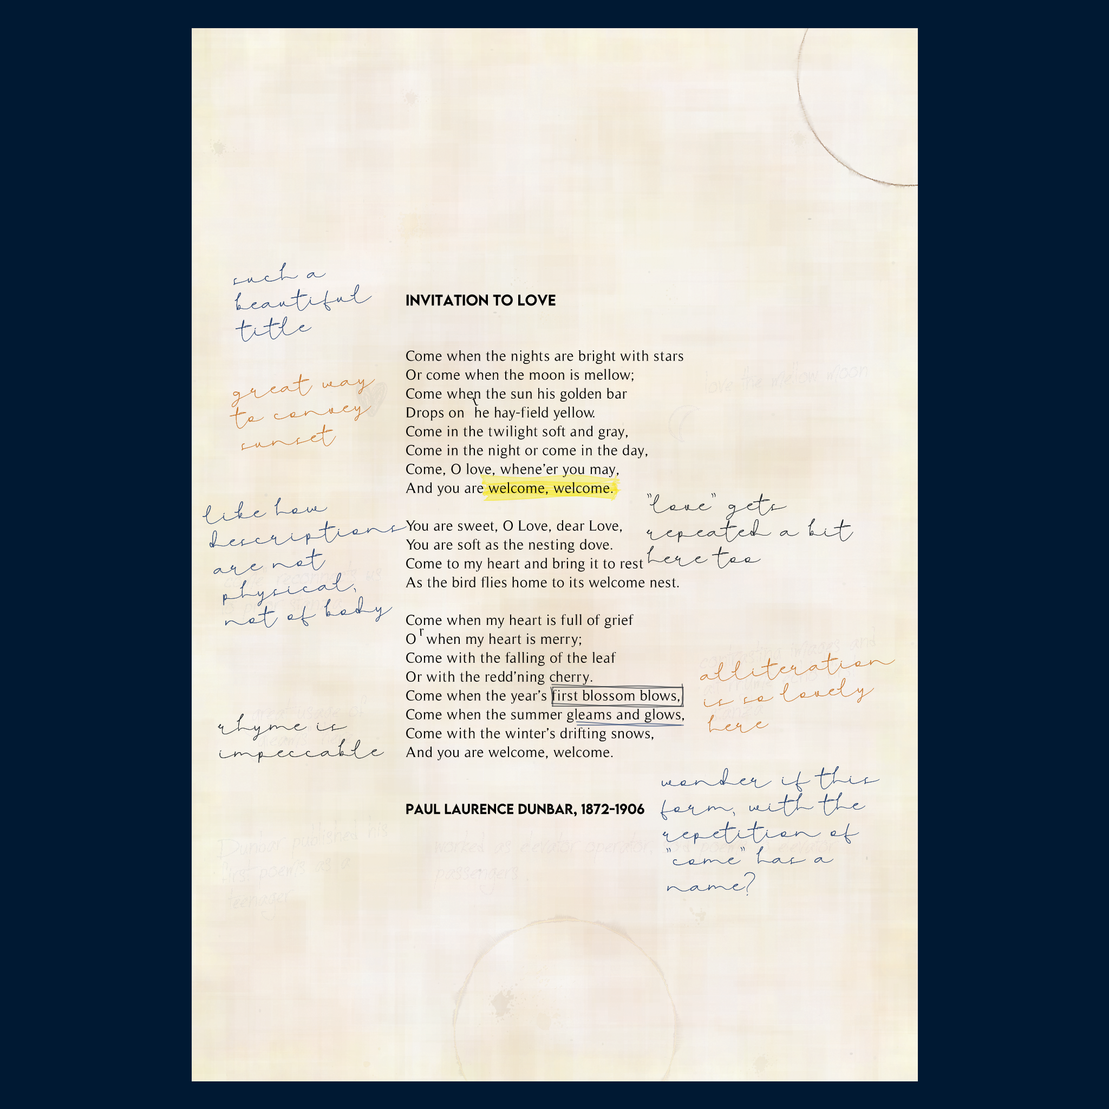 such a
beautiful
title
INVITATION TO LOVE
great way
to convey
sunset
Come when the nights are bright with stars
Or come when the moon is mellow;
Come when the sun his golden bar
Drops on the hay-field yellow.
Come in the twilight soft and gray,
Come in the night or come in the day,
Come, O love, whene'er you may,
And you are welcome, welcome.
love the mellow moon
like how
descriptions
are not
physical,
not of body
You are sweet, O Love, dear Love,
You are soft as the nesting dove.
Come to my heart and bring it to rest
As the bird flies home to its welcome nest.
"love" gets
repeated a bit
here too
Come when my heart is full of grief
Or when my heart is merry;
Come with the falling of the leaf
Or with the redd'ning cherry.
Come when the year's first blossom blows,
Come when the summer gleams and glows,
Come with the winter's drifting snows,
And you are welcome, welcome.
alliteration
is so lovely
here
rhyme is
impeccable
PAUL LAURENCE DUNBAR, 1872-1906
wonder if this
form, with the
repetition of
"come" has a
name?
passengers